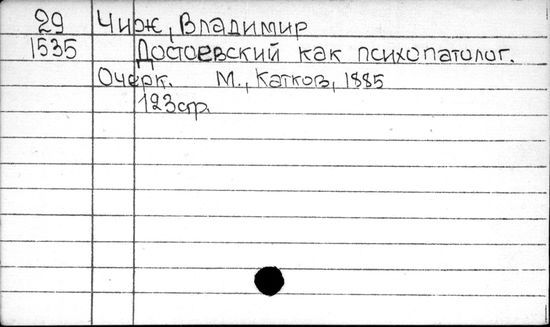 29 Чиж, Владимир
1535 Достоевский как психопатолог.
Очерк. М., Катков, 1885
123стр.